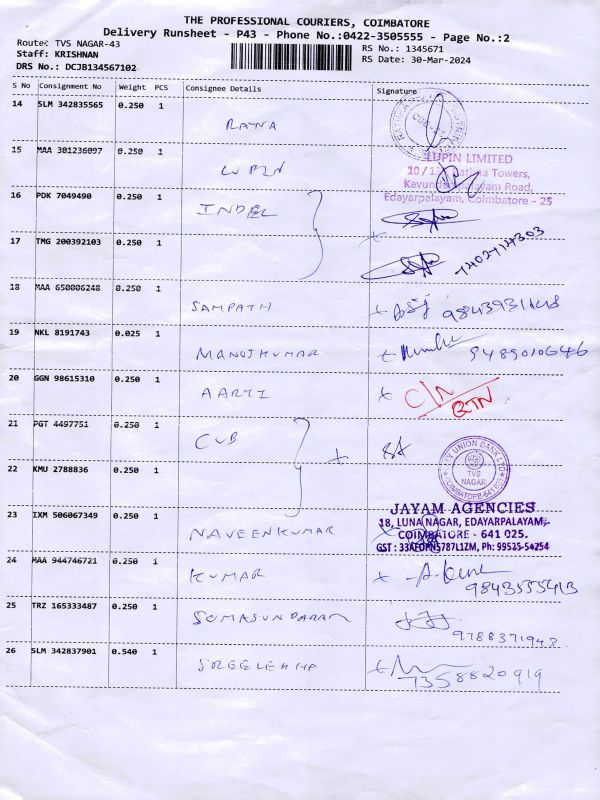 THE PROFESSIONAL COURIERS, COIMBATORE
Delivery Runsheet - P43 - Phone No.:0422-3505555 - Page No.:2
Route: TVS NAGAR-43
RS No.: 1345671
Staff: KRISHNAN
RS Date: 30-Mar-2024
DRS No.: DCJB134567102
S No Consignment No Weight PCS Consignee Details Signature
14 SLM 342835565 0.250 1
RATNA
15 MAA 301236097 0.250 1
LUPIN
LUPIN LIMITED
Towers,
Road,
Edayarpalayam, Coimbatore - 25
16 PDK 7049490 0.250 1
INDEL
17 TMG 200392103 0.250 1
7402714303
18 MAA 650006248 0.250 1
SAMPATH
19 NKL 8191743 0.025 1
MANOJKUMAR
9489010646
20 GGN 98615310 0.250 1
AARTI
C/N
RTN
21 PGT 4497751 0.250 1
CUB
22 KMU 2788836 0.250 1
UNION BANK LTD
TVS
NAGAR
COIMBATORE-641 025
23 IXM 506067349 0.250 1
NAVEENKUMAR
JAYAM AGENCIES
18, LUNA NAGAR, EDAYARPALAYAM,
COIMBATORE - 641 025.
Ph: 99525-54254
24 MAA 944746721 0.250 1
KUMAR
9843555413
25 TRZ 165333487 0.250 1
SOMASUNDARAM
9788371943
26 SLM 342837901 0.540 1
SREELEKHA
7358820919